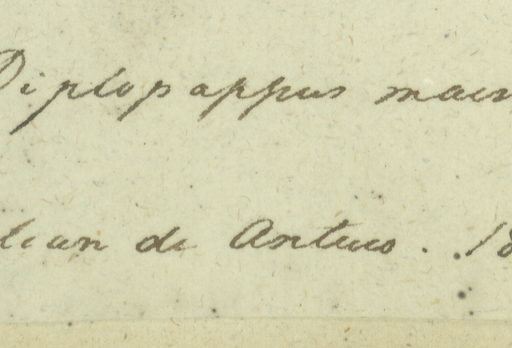 Diplopappus macr
lcan de Antuco. 18